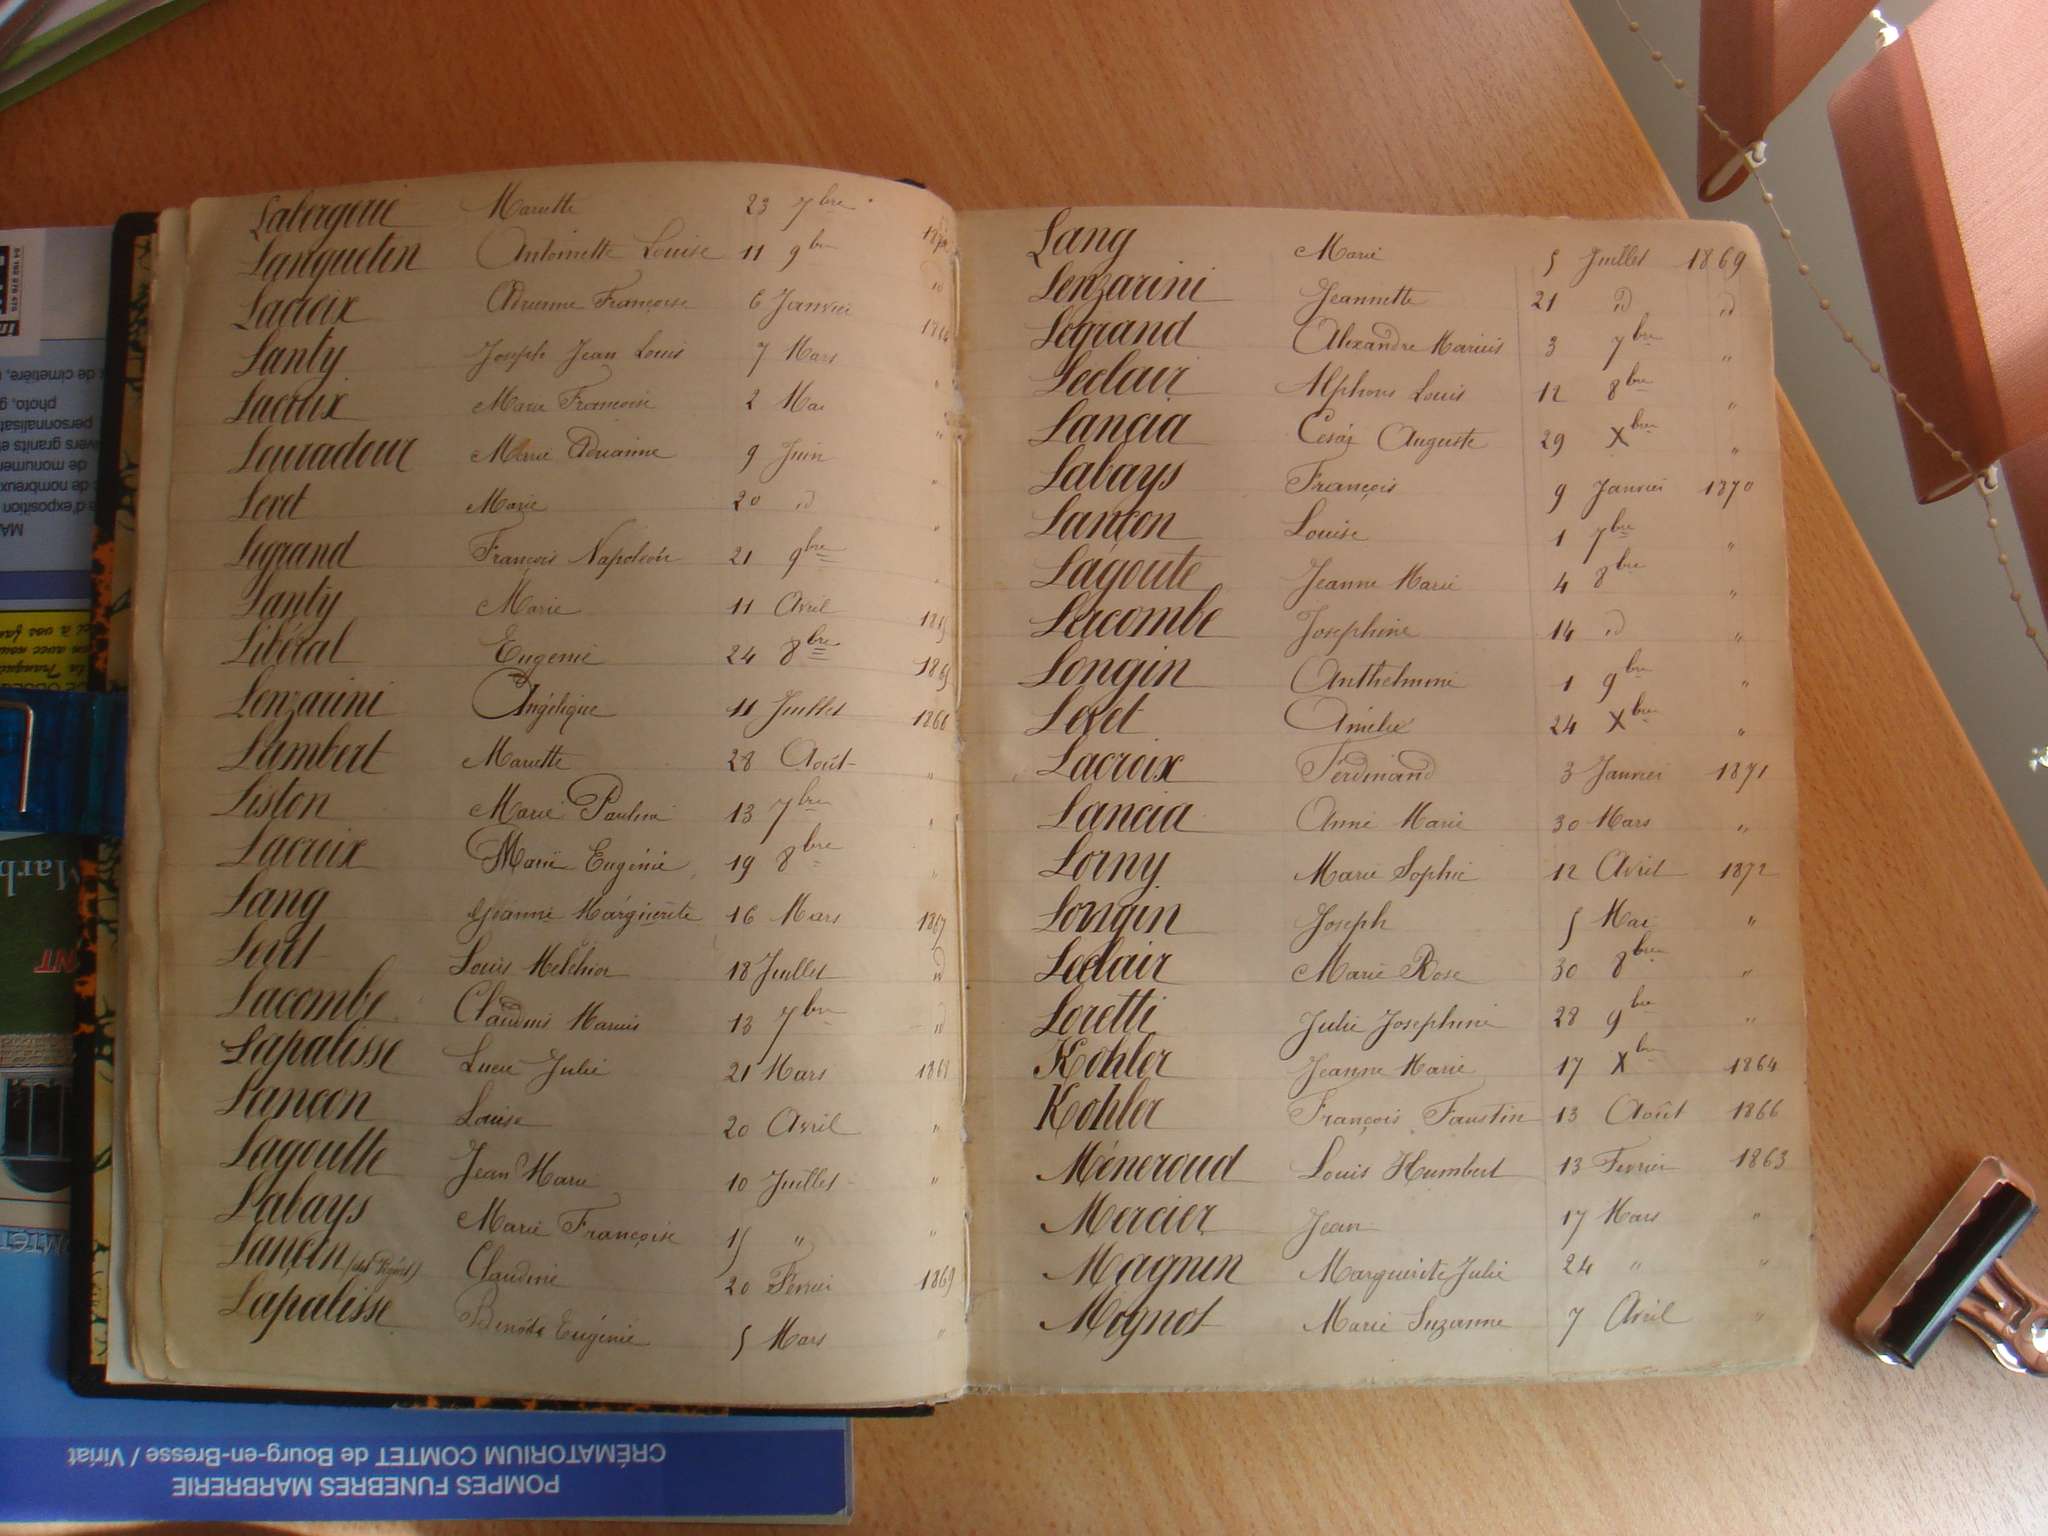 Labergerie Mariette 23 7bre
Languetin Antoinette Louise 11 9bre
Lacroix Adrienne Françoise 6 Janvier
Lanty Joseph Jean Louis 7 Mars "
Lacroix Marie Françoise 2 Mai "
Lauradour Marie 9 Juin "
Leret Marie 20 id "
Legrand François Napoléon 21 9bre "
Lanty Marie 11 Avril
Libéral Eugenie 24 8bre 1865
Lenzarini Angélique 11 Juillet 1866
Lambert Mariette 28 Août "
Liston Marie Pauline 13 7bre "
Lacroix Marie Eugénie 19 8bre "
Lang Jeanne Marguerite 16 Mars 1867
Leret Louis Melchior 18 Juillet id
Lacombe Claudius Marius 13 7bre id
Lapalisse Lucie Julie 21 Mars 1868
Lançon Louise 20 Avril "
Lagoutte Jean Marie 10 Juillet "
Labays Marie Françoise 15 " "
Lançon Claudine 20 Février 1869
Lapalisse Benoite Eugénie 5 Mars "
Lang Marie 5 Juillet 1869
Lenzarini Jeannette 21 id id
Legrand Alexandre Marius 3 7bre "
Leclair Alphons Louis 12 8bre "
Lancia Cesar Auguste 29 Xbre "
Labays François 9 Janvier 1870
Lançon Louise 1 7bre "
Lagoute Jeanne Marie 4 8bre "
Lacombe Josephine 14 id "
Longin Anthelmine 1 9bre "
Leret Amélie 24 Xbre "
Lacroix Ferdinand 3 Janvier 1871
Lancia Anne Marie 30 Mars "
Lorny Marie Sophie 12 Avril 1872
Longin Joseph 5 Mai "
Leclair Marie Rose 30 8bre "
Loretti Julie Josephine 28 9bre "
Kohler Jeanne Marie 17 Xbre 1864
Kohler François Faustin 13 Août 1866
Méneroud Louis Humbert 13 Fevrier 1863
Mercier Jean 17 Mars "
Magnin Marguerite Julie 24 " "
Mognot Marie Suzanne 7 Avril "
POMPES FUNEBRES MARBRERIE
CRÉMATORIUM COMTET de Bourg-en-Bresse / Viriat